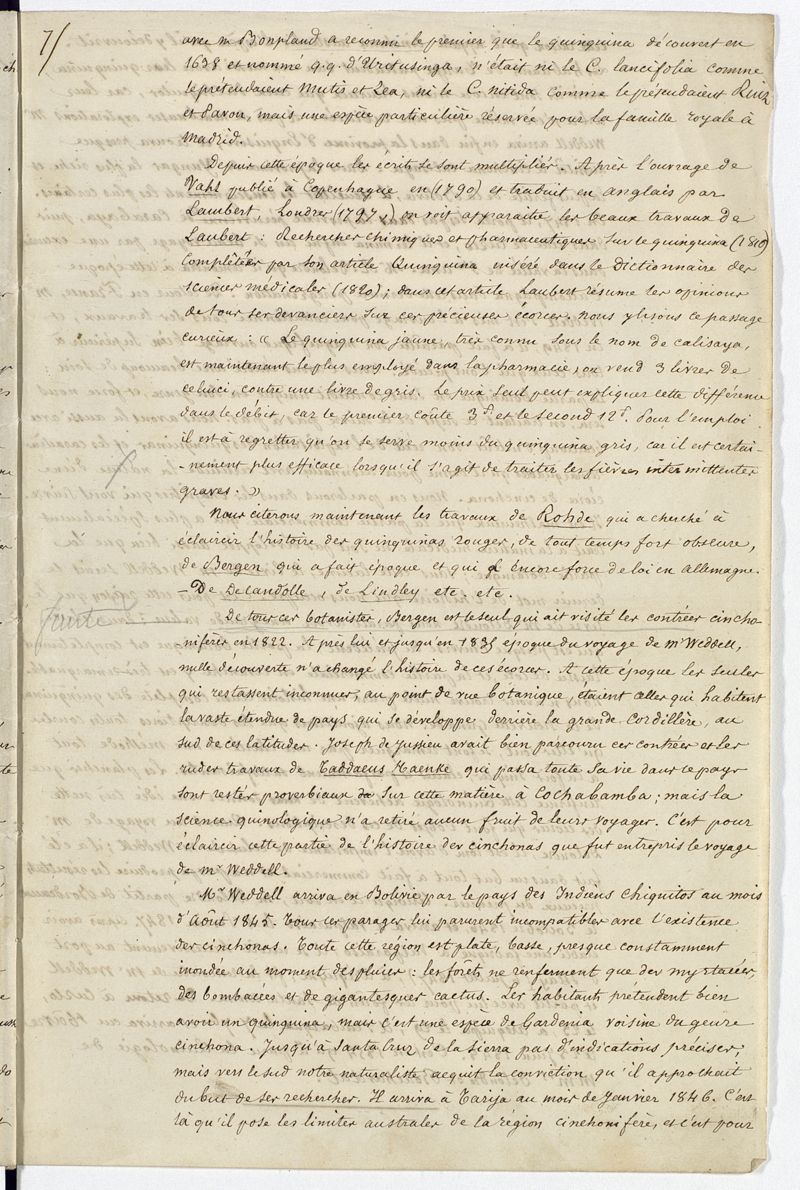 7/
avec mr Bonpland a reconnu le premier que le quinquina découvert en
1638 et nommé q.q. d'Uritusinga, n'était ni le C. lancifolia comme
le prétendaient Mutis et Zea, ni le C. nitida comme le prétendaient Ruiz
et Pavon, mais une espèce particulière réservée pour la famille royale à
Madrid.
Depuis cette époque les écrits se sont multipliés. Après l'ouvrage de
Vahl publié à Copenhague en (1790) et traduit en anglais par
Lambert, Londres (1797,) on voit apparaitre les beaux travaux de
Laubert : Recherches chimiques et pharmaceutiques sur le quinquina (1810)
complétées par son article Quinquina inséré dans le Dictionnaire des
sciences médicales (1820) ; dans cet article Laubert résume les opinions
de tous ses devanciers sur ces précieuses écorces. Nous y lisons ce passage
curieux : « Le quinquina jaune, très connu sous le nom de calisaya,
est maintenant le plus employé dans la pharmacie, on vend 3 livres de
celuici, contre une livre de gris. Le prix seul peut expliquer cette différence
dans le débit, car le premier coûte 3f et le second 12f. Pour l'emploi
il est à regretter qu'on se serve moins du quinquina gris, car il est certai-
-nement plus efficace lorsqu'il s'agit de traiter les fièvres intermittentes
graves. »
Nous citerons maintenant les travaux de Rohde qui a cherché à
éclaircir l'histoire des quinquinas rouges, de tout temps fort obscure,
de Bergen qui a fait époque et qui a encore force de loi en allemagne.
- De Decandolle, de Lindley etc. etc.
De tous ces botanistes, Bergen est le seul qui ait visité les contrées cincho-
nifères en 1822. Après lui et jusqu'en 1835 époque du voyage de mr Weddell,
nulle découverte n'a changé l'histoire de ces écorces. A cette époque les seules
qui restassent inconnues, au point de vue botanique, étaient celles qui habitent
la vaste étendue de pays qui se développe derrière la grande Cordillère, au
sud de ces latitudes. Joseph de Jussieu avait bien parcouru ces contrées et les
rudes travaux de Taddaeus Haenke qui passa toute sa vie dans ce pays
sont restés proverbiaux sur cette matière à Cochabamba ; mais la
science quinologique n'a retiré aucun fruit de leurs voyages. C'est pour
éclaircir cette partie de l'histoire des cinchonas que fut entrepris le voyage
de mr Weddell.
Mr Weddell arriva en Bolivie par le pays des Indiens Chiquitos au mois
d'Août 1845. Tous ces parages lui parurent incompatibles avec l'existence
des cinchonas. Toute cette région est plate, basse, presque constamment
inondée au moment des pluies : les forêts ne renferment que des myrtacées,
des bombacées et de gigantesques cactus. Les habitants prétendent bien
avoir un quinquina, mais c'est une espèce de Gardenia voisine du genre
cinchona. Jusqu'à Santa Cruz de la Sierra pas d'indications précises,
mais vers le sud notre naturaliste acquit la conviction qu'il approchait
du but de ses recherches. Il arriva à Tarija au mois de Janvier 1846. C'est
là qu'il pose les limites australes de la région cinchonifère, et c'est pour